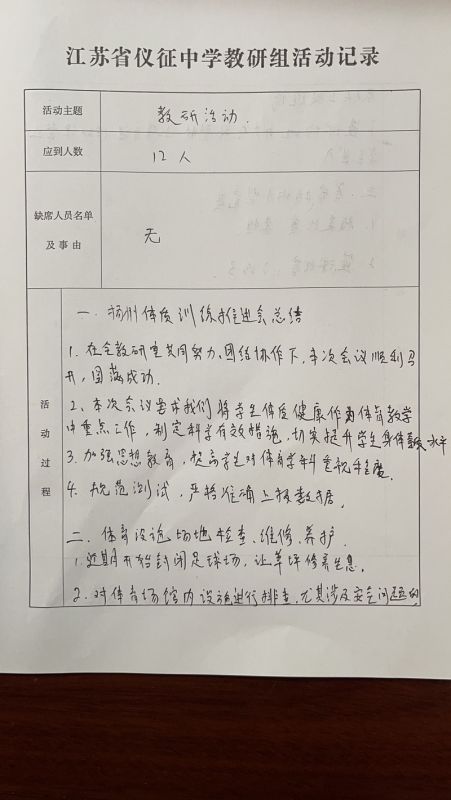 江苏省仪征中学教研组活动记录
活动主题
教研活动.
应到人数
12人
缺席人员名单
及事由
无
活动过程
一. 扬州体质训练推进会总结
1. 在全教研室共同努力、团结协作下,本次会议顺利召
开,圆满成功.
2、本次会议要求我们将学生体质健康作为体育教学
中重点工作,制定科学有效措施,切实提升学生身体水平
3. 加强思想教育,提高学生对体育学科重视程度.
4. 规范测试,严格准确上报数据.
二. 体育设施场地检查、维修、养护.
1. 近期开始封闭足球场,让草坪修养生息.
2. 对体育场馆内设施进行排查,尤其涉及安全问题的